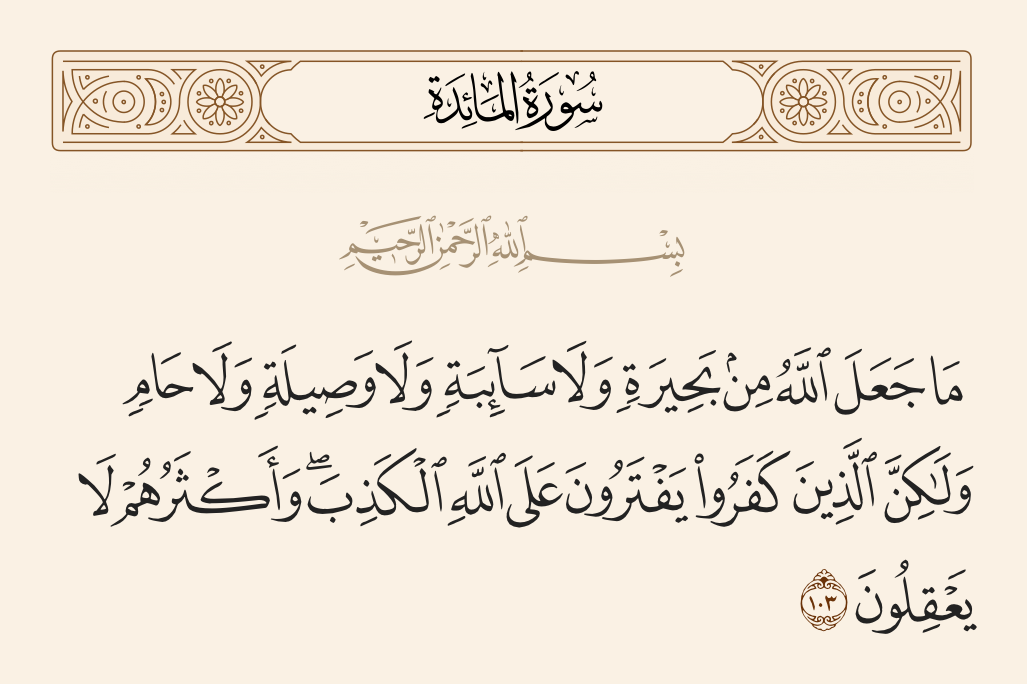 سُورَةُ المَائِدَةِ
بِسْمِ ٱللَّهِ ٱلرَّحْمَٰنِ ٱلرَّحِيمِ
مَا جَعَلَ ٱللَّهُ مِنۢ بَحِيرَةٍ وَلَا سَآئِبَةٍ وَلَا وَصِيلَةٍ وَلَا حَامٍ
وَلَٰكِنَّ ٱلَّذِينَ كَفَرُوا۟ يَفْتَرُونَ عَلَى ٱللَّهِ ٱلْكَذِبَ ۖ وَأَكْثَرُهُمْ لَا
يَعْقِلُونَ ١٠٣